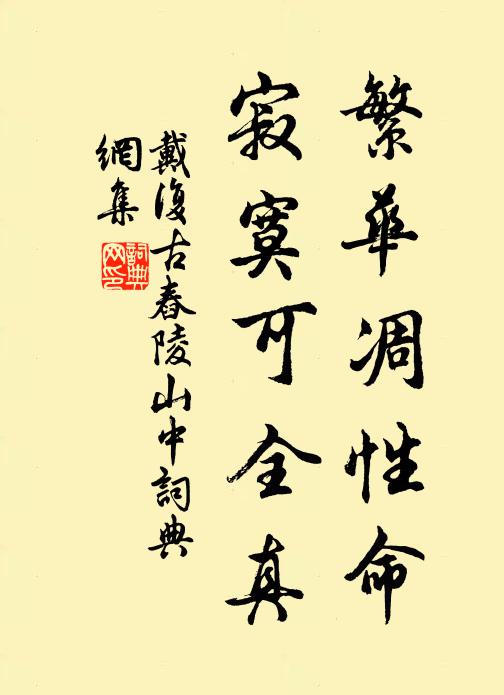 繁華凋性命
寂寞可全真
戴復古舂陵山中詞典
網集
詞典
网印